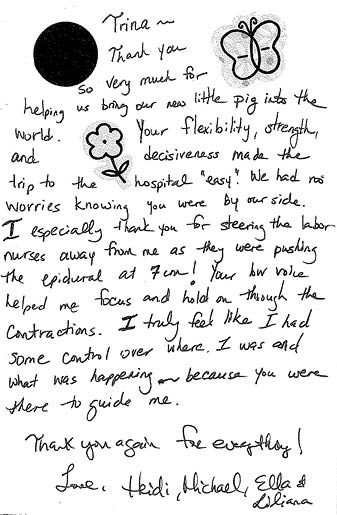 Trina ~
Thank you
so very much for
helping us bring our new little pig into the
world. Your flexibility, strength,
and decisiveness made the
trip to the hospital "easy". We had no
worries knowing you were by our side.
I especially thank you for steering the labor
nurses away from me as they were pushing
the epidural at 7cm! Your low voice
helped me focus and hold on through the
contractions. I truly feel like I had
some control over where I was and
what was happening ~ because you were
there to guide me.
Thank you again for everything!
Love, Heidi, Michael, Ella &
Liliana